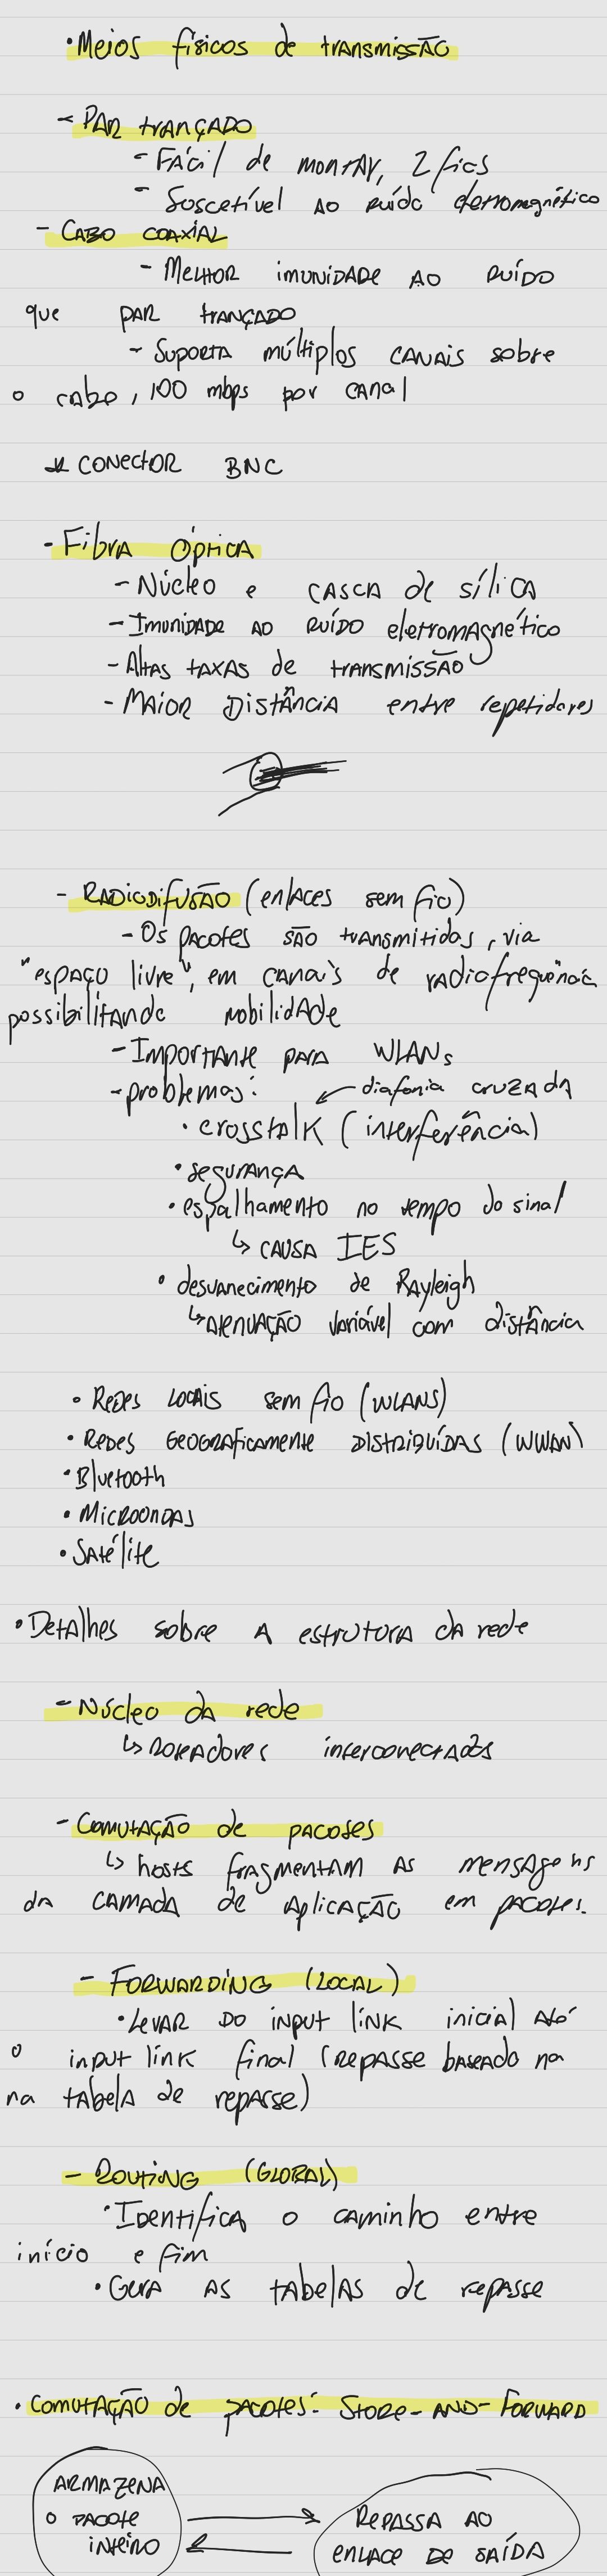 • Meios físicos de transmissão
- Par trançado
- Fácil de montar, 2 fios
- Suscetível ao ruído eletromagnético
- Cabo coaxial
- Melhor imunidade ao ruído
que par trançado
- Suporta múltiplos canais sobre
o cabo, 100 mbps por canal
* conector BNC
- Fibra óptica
- Núcleo e casca de sílica
- Imunidade ao ruído eletromagnético
- Altas taxas de transmissão
- Maior distância entre repetidores
- Radiodifusão (enlaces sem fio)
- Os pacotes são transmitidos, via
"espaço livre", em canais de radiofrequência
possibilitando mobilidade
- Importante para WLANs
- problemas:
← diafonia cruzada
• crosstalk (interferência)
• segurança
• espalhamento no tempo do sinal
↳ causa IES
• desvanecimento de Rayleigh
↳ atenuação variável com distância
• Redes locais sem fio (WLANs)
• Redes geograficamente distribuídas (WWAN)
• Bluetooth
• Microondas
• Satélite
• Detalhes sobre a estrutura da rede
- Núcleo da rede
↳ roteadores interconectados
- Comutação de pacotes
↳ hosts fragmentam as mensagens
da camada de aplicação em pacotes.
- Forwarding (local)
• Levar do input link inicial até
o input link final (repasse baseado na
na tabela de repasse)
- Routing (global)
• Identifica o caminho entre
início e fim
• Gera as tabelas de repasse
• Comutação de pacotes: Store-and-Forward
Armazena
o pacote
inteiro
Repassa ao
enlace de saída